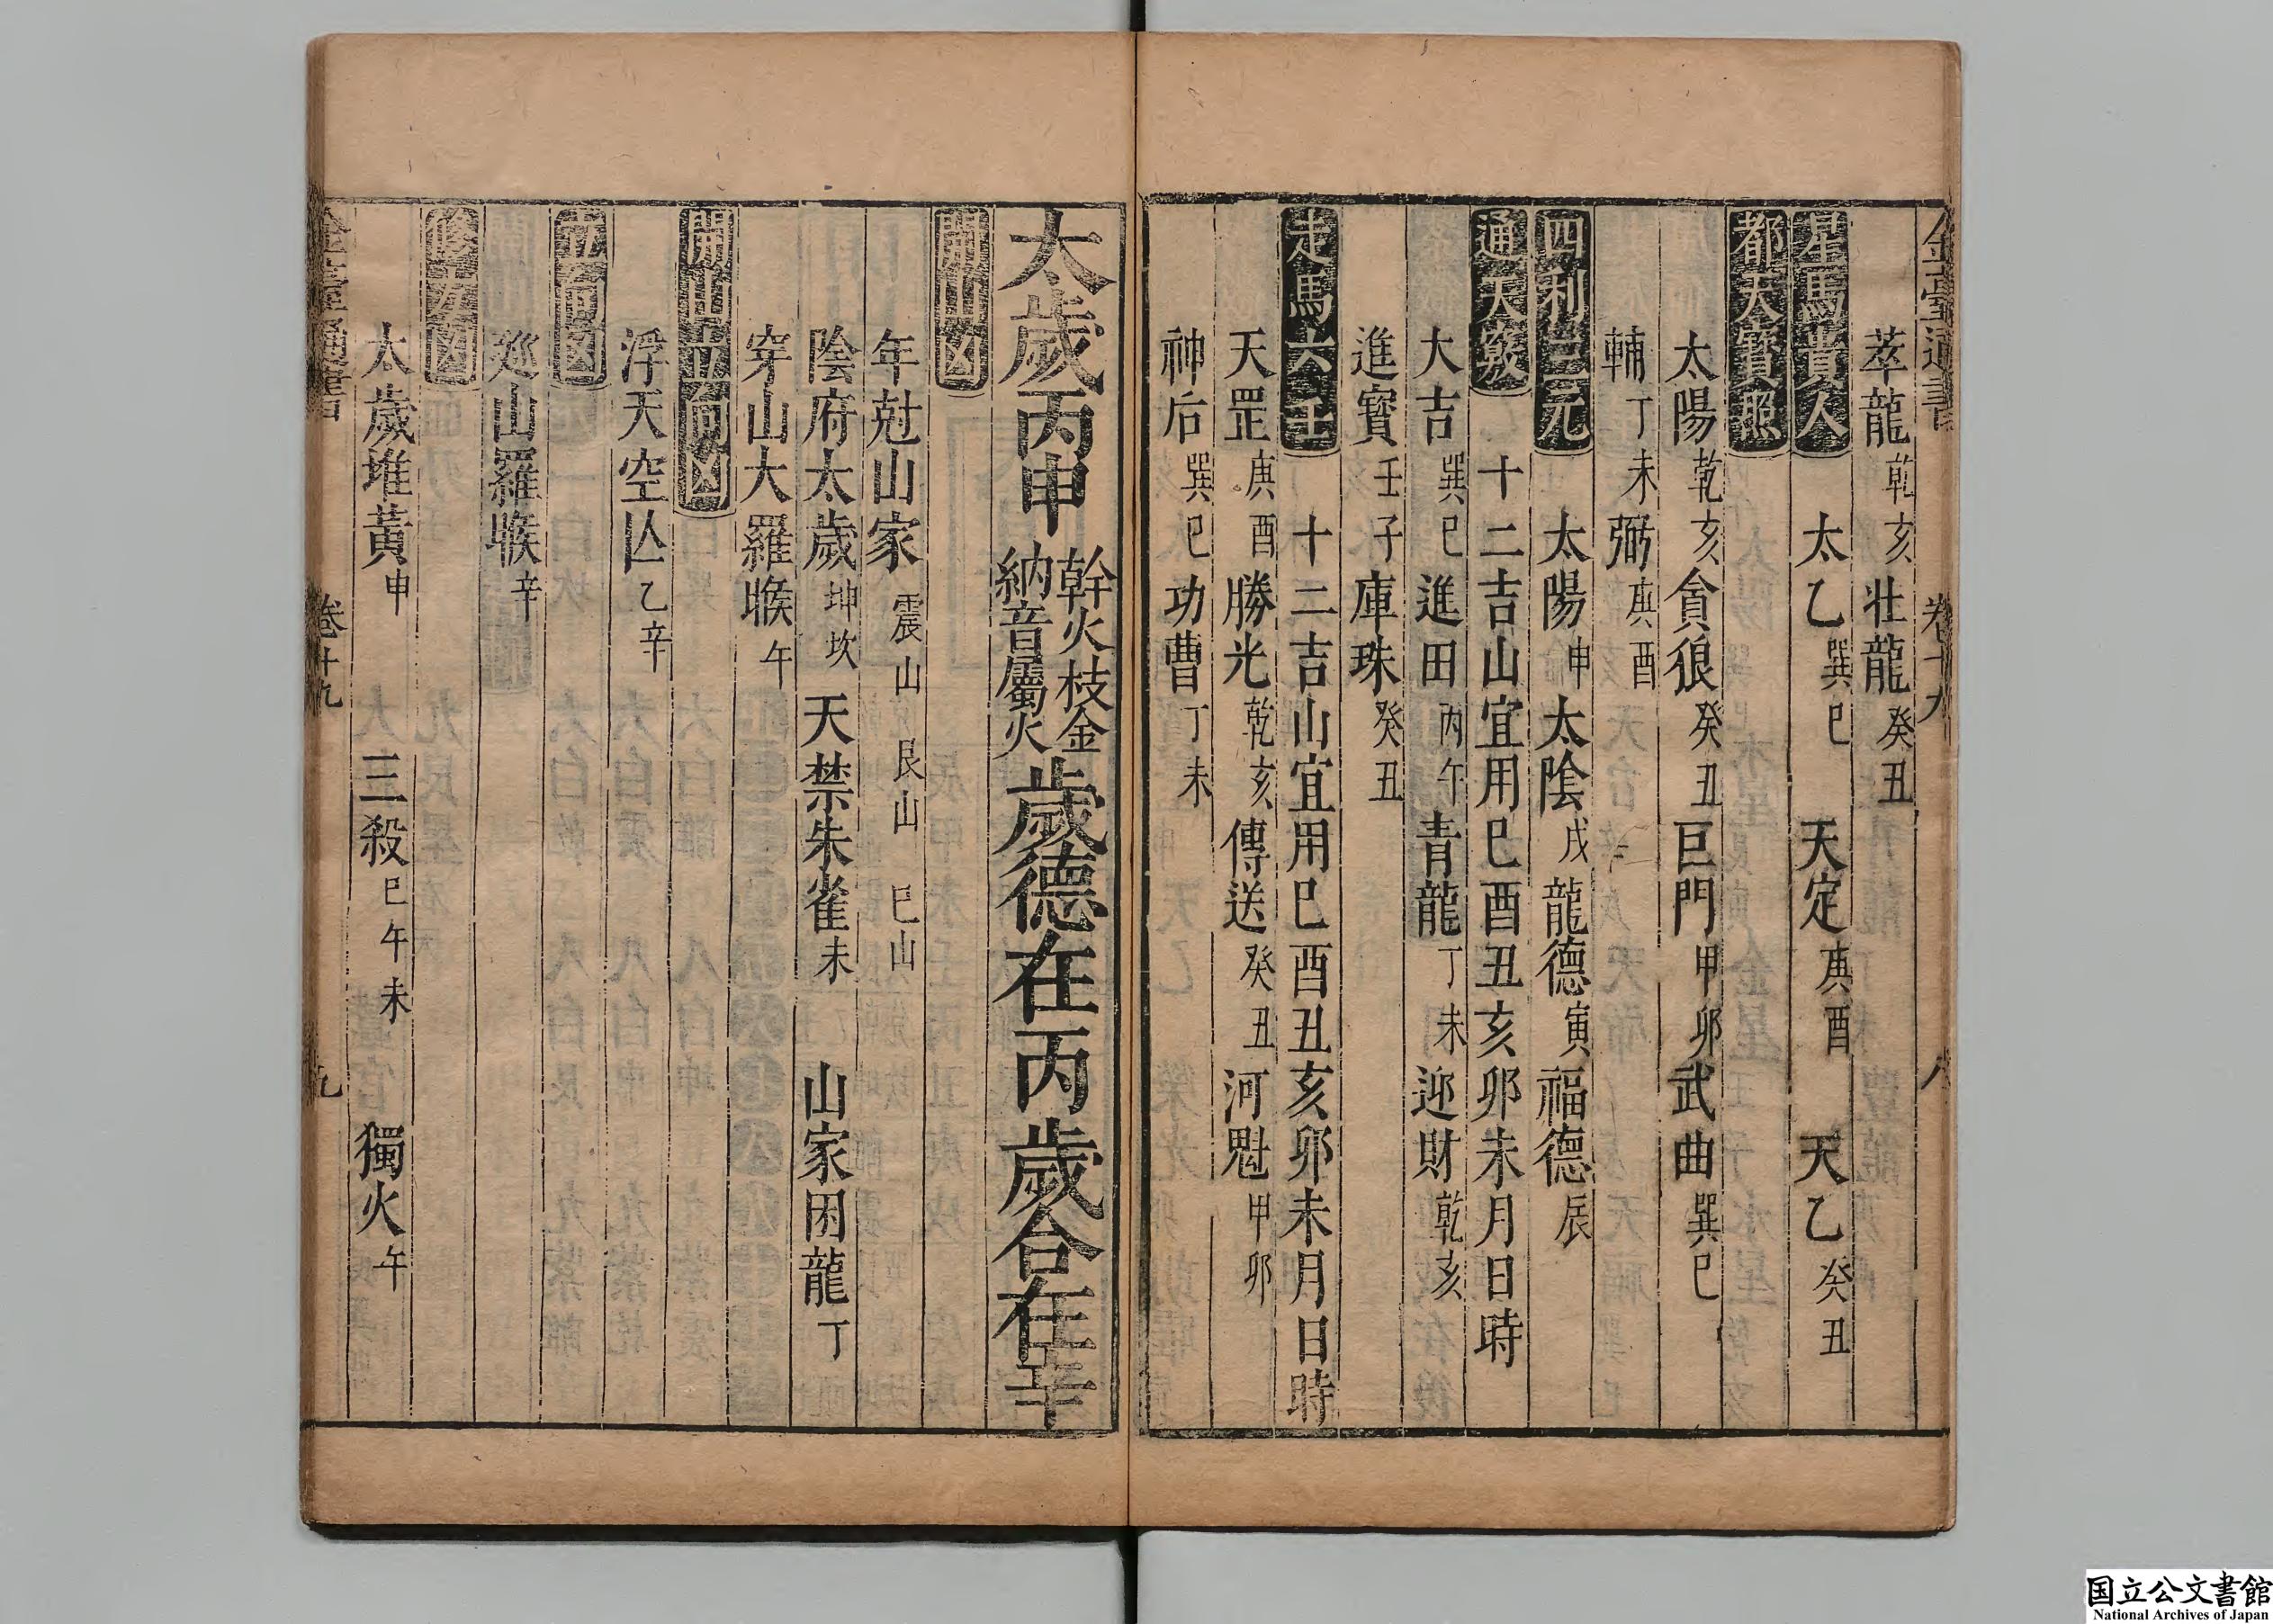 金臺通書 卷十九 八
萃龍乾亥 壯龍癸丑
星馬貴人 太乙巽巳 天定庚酉 天乙癸丑
都天寶照
太陽乾亥 貪狼癸丑 巨門甲卯 武曲巽巳
輔丁未 弼庚酉
四利三元 太陽申 太陰戌 龍德寅 福德辰
通天竅 十二吉山宜用巳酉丑亥卯未月日時
大吉巽巳 進田丙午 青龍丁未 迎財乾亥
進寶壬子 庫珠癸丑
走馬六壬 十二吉山宜用巳酉丑亥卯未月日時
天罡庚酉 勝光乾亥 傳送癸丑 河魁甲卯
神后巽巳 功曹丁未
太歲丙申 幹火枝金 納音屬火 歲德在丙歲合在辛
開山凶
年尅山家 震山 艮山 巳山
陰府太歲坤坎 天禁朱雀未 山家困龍丁
穿山大羅睺午
開山立向凶
浮天空亾乙辛
立向凶
巡山羅睺辛
修方凶
太歲堆黃申 三殺巳午未 獨火午
金臺通書 卷十九 九